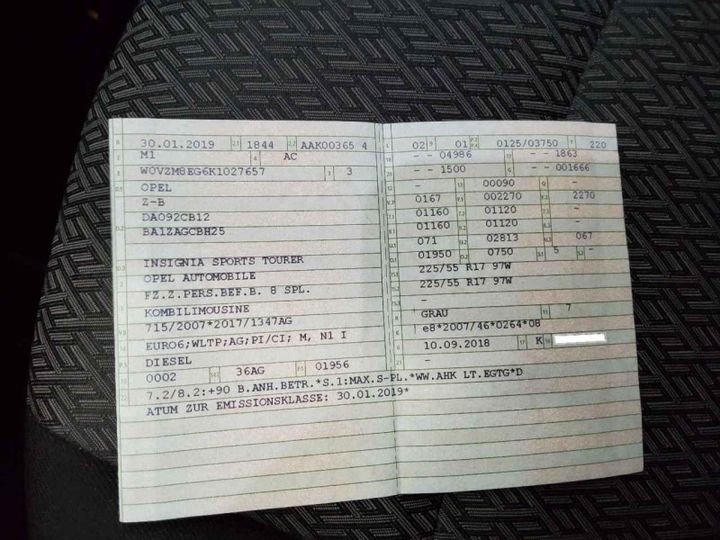 30.01.2019 1844 AAK00365 4
M1 AC
W0VZM8EG6K1027657 3
OPEL
Z-B
DA092CB12
BA1ZAGCBH25
INSIGNIA SPORTS TOURER
OPEL AUTOMOBILE
FZ.Z.PERS.BEF.B. 8 SPL.
KOMBILIMOUSINE
715/2007*2017/1347AG
EURO6;WLTP;AG;PI/CI; M, N1 I
DIESEL
0002 36AG 01956
7.2/8.2:+90 B.ANH.BETR.*S.1:MAX.S-PL.*WW.AHK LT.EGTG*D
ATUM ZUR EMISSIONSKLASSE: 30.01.2019*
02 01 0125/03750 220
- - 04986 - - 1863
- - 1500 - - 001666
- 00090 -
0167 002270 2270
01160 01120 -
01160 01120 -
071 02813 067
01950 0750 5 -
225/55 R17 97W
225/55 R17 97W
-
-
GRAU 7
e8*2007/46*0264*08
10.09.2018 K
-